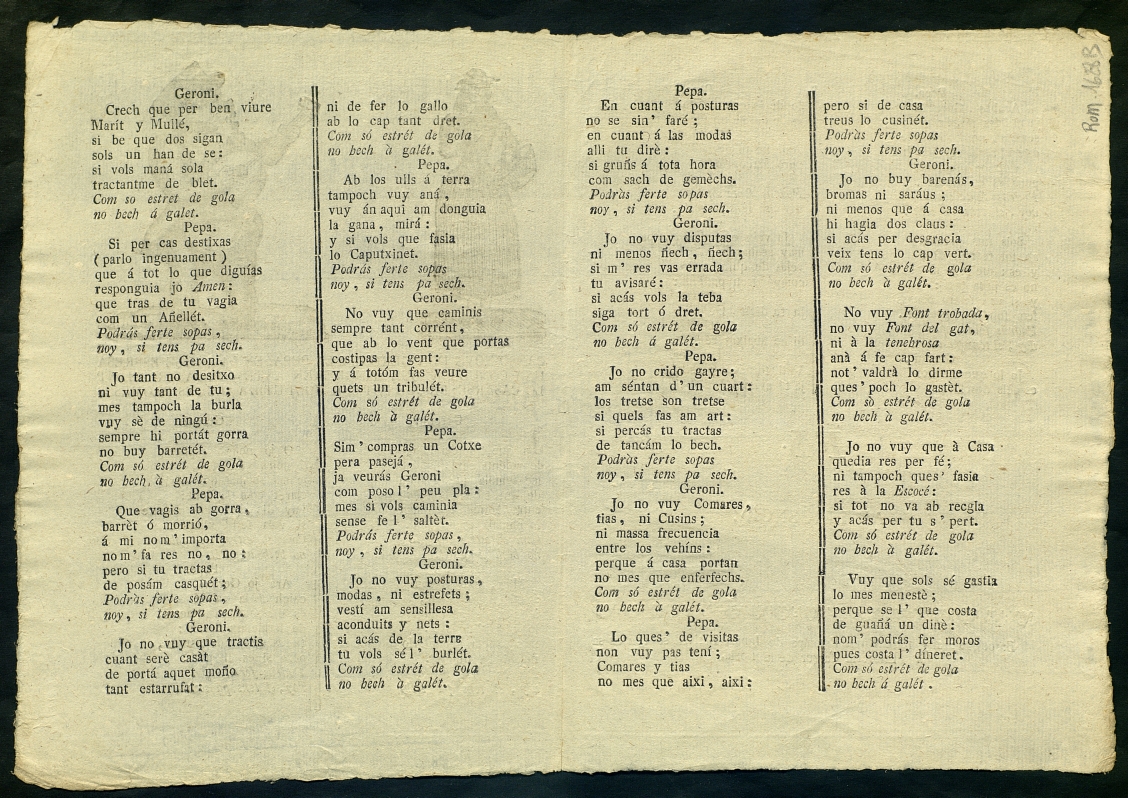 Geroni.
Crech que per ben viure
Marít y Mullé,
si be que dos sigan
sols un han de se:
si vols maná sola
tractantme de blet.
Com so estret de gola
no bech á galet.
Pepa.
Si per cas destixas
( parlo ingenuament )
que á tot lo que diguías
responguia jo Amen:
que tras de tu vagia
com un Añellét.
Podrás ferte sopas,
noy, si tens pa sech.
Geroni.
Jo tant no desitxo
ni vuy tant de tu;
mes tampoch la burla
vuy sè de ningú:
sempre hi portát gorra
no buy barretét.
Com só estrét de gola
no bech, à galét.
Pepa.
Que vagis ab gorra,
barrèt ó morrió,
á mi nom' importa
nom' fa res no, no:
pero si tu tractas
de posám casquét;
Podràs ferte sopas,
noy, si tens pa sech.
Geroni.
Jo no vuy que tractis
cuant serè casàt
de portá aquet moño
tant estarrufat:
ni de fer lo gallo
ab lo cap tant dret.
Com só estrét de gola
no bech à galét.
Pepa.
Ab los ulls á terra
tampoch vuy aná,
vuy án aqui am donguia
la gana, mirá:
y si vols que fasia
lo Caputxinet.
Podrás ferte sopas
noy, si tens pa sech.
Geroni.
No vuy que caminis
sempre tant corrént,
que ab lo vent que portas
costipas la gent:
y á totóm fas veure
quets un tribulét.
Com só estrét de gola
no bech à galét.
Pepa.
Sim' compras un Cotxe
pera pasejá,
ja veurás Geroni
com poso l' peu pla:
mes si vols caminia
sense fe l' saltèt.
Podràs ferte sopas,
noy, si tens pa sech.
Geroni.
Jo no vuy posturas,
modas, ni estrefets;
vestí am sensillesa
aconduits y nets:
si acás de la terra
tu vols sé l' burlét.
Com só estrét de gola
no bech à galét.
Pepa.
En cuant á posturas
no se sin' faré;
en cuant á las modas
alli tu dirè:
si gruñs á tota hora
com sach de gemèchs.
Podràs ferte sopas
noy, si tens pa sech.
Geroni.
Jo no vuy disputas
ni menos ñech, ñech;
si m' res vas errada
tu avisaré:
si acás vols la teba
siga tort ó dret.
Com só estrét de gola
no bech á galét.
Pepa.
Jo no crido gayre;
am séntan d' un cuart:
los tretse son tretse
si quels fas am art:
si percás tu tractas
de tancám lo bech.
Podràs ferte sopas
noy, si tens pa sech.
Geroni.
Jo no vuy Comares,
tias, ni Cusins;
ni massa frecuencia
entre los vehíns:
perque á casa portan
no mes que enferfechs.
Com só estrét de gola
no bech á galét.
Pepa.
Lo ques' de visitas
non vuy pas tení;
Comares y tias
no mes que aixi, aixi:
pero si de casa
treus lo cusinét.
Podràs ferte sopas
noy, si tens pa sech.
Geroni.
Jo no buy barenás,
bromas ni saráus;
ni menos que á casa
hi hagia dos claus:
si acás per desgracia
veix tens lo cap vert.
Com só estrét de gola
no bech á galét.
No vuy Font trobada,
no vuy Font del gat,
ni à la tenebrosa
anà á fe cap fart:
not' valdrà lo dirme
ques' poch lo gastèt.
Com sò estrét de gola
no bech à galét.
Jo no vuy que à Casa
quedia res per fé;
ni tampoch ques' fasia
res à la Escocé:
si tot no va ab recgla
y acás per tu s' pert.
Com só estrét de gola
no bech à galét.
Vuy que sols sé gastia
lo mes menestè;
perque se l' que costa
de guañá un dinè:
nom' podrás fer moros
pues costa l' dineret.
Com só estrét de gola
no bech á galét.
Rom. 1688 B